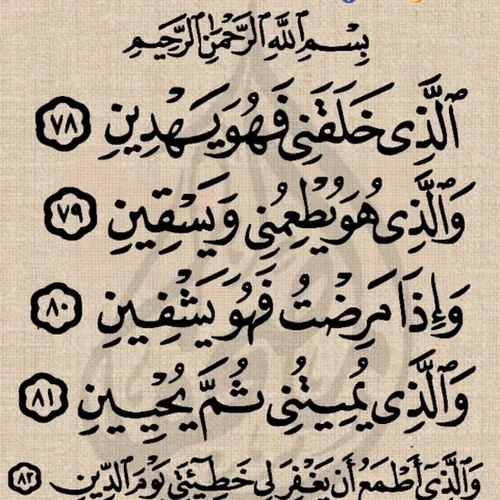 بِسْمِ ٱللَّهِ ٱلرَّحْمَٰنِ ٱلرَّحِيمِ
ٱلَّذِى خَلَقَنِى فَهُوَ يَهْدِينِ ٧٨
وَٱلَّذِى هُوَ يُطْعِمُنِى وَيَسْقِينِ ٧٩
وَإِذَا مَرِضْتُ فَهُوَ يَشْفِينِ ٨٠
وَٱلَّذِى يُمِيتُنِى ثُمَّ يُحْيِينِ ٨١
وَٱلَّذِىٓ أَطْمَعُ أَن يَغْفِرَ لِى خَطِيٓـَٔتِى يَوْمَ ٱلدِّينِ ٨٢